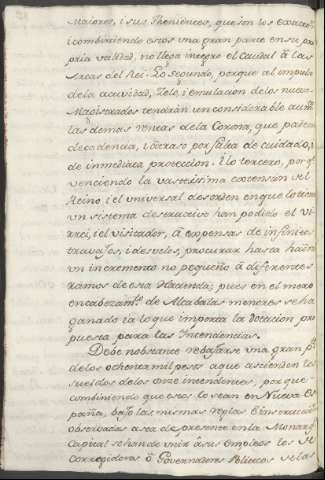 maiores, i sus Thenientes, que son los exactores
i combiniendo esos una gran parte en su pro
pria utilidad, no llega integro el Caudal â las
Arcas del Rei. Lo segundo, porque al impulso
de la actividad, Zelo, i emulacion de los nuevos
Magistrados tendrán un considerable aum.to
las demas rentas de la Corona, que padecen
decadencia, i atraso por falta de cuidado, i
de inmediata proteccion. I lo tercero, por q.e
venciendo la vastissima extension del
Reino i el universal desorden en que lo tiene
un sistema destructivo han podido el Vi-
rrei, i el visitador, â expensas de infinitos
travajos, i desvelos, procurar hasta haora
un incremento no pequeño â diferentes
ramos de esa Hacienda; pues en el mero
encabezam.to de Alcabalas menores se ha
ganado ia lo que importa la Dotacion pro
puesta para las Intendencias.
Debe no obstante rebajarse una gran p.te
de los ochenta mil pesos a que ascienden los
sueldos de los once intendentes, por que
combiniendo que estos lo sean en Nueva Es
paña, bajo las mismas reglas ê instrucciones
observadas asta de presente en la Monarq.a
Capital se han de unir â sus Empleos los de
Corregidores ô Governadores Politicos de las